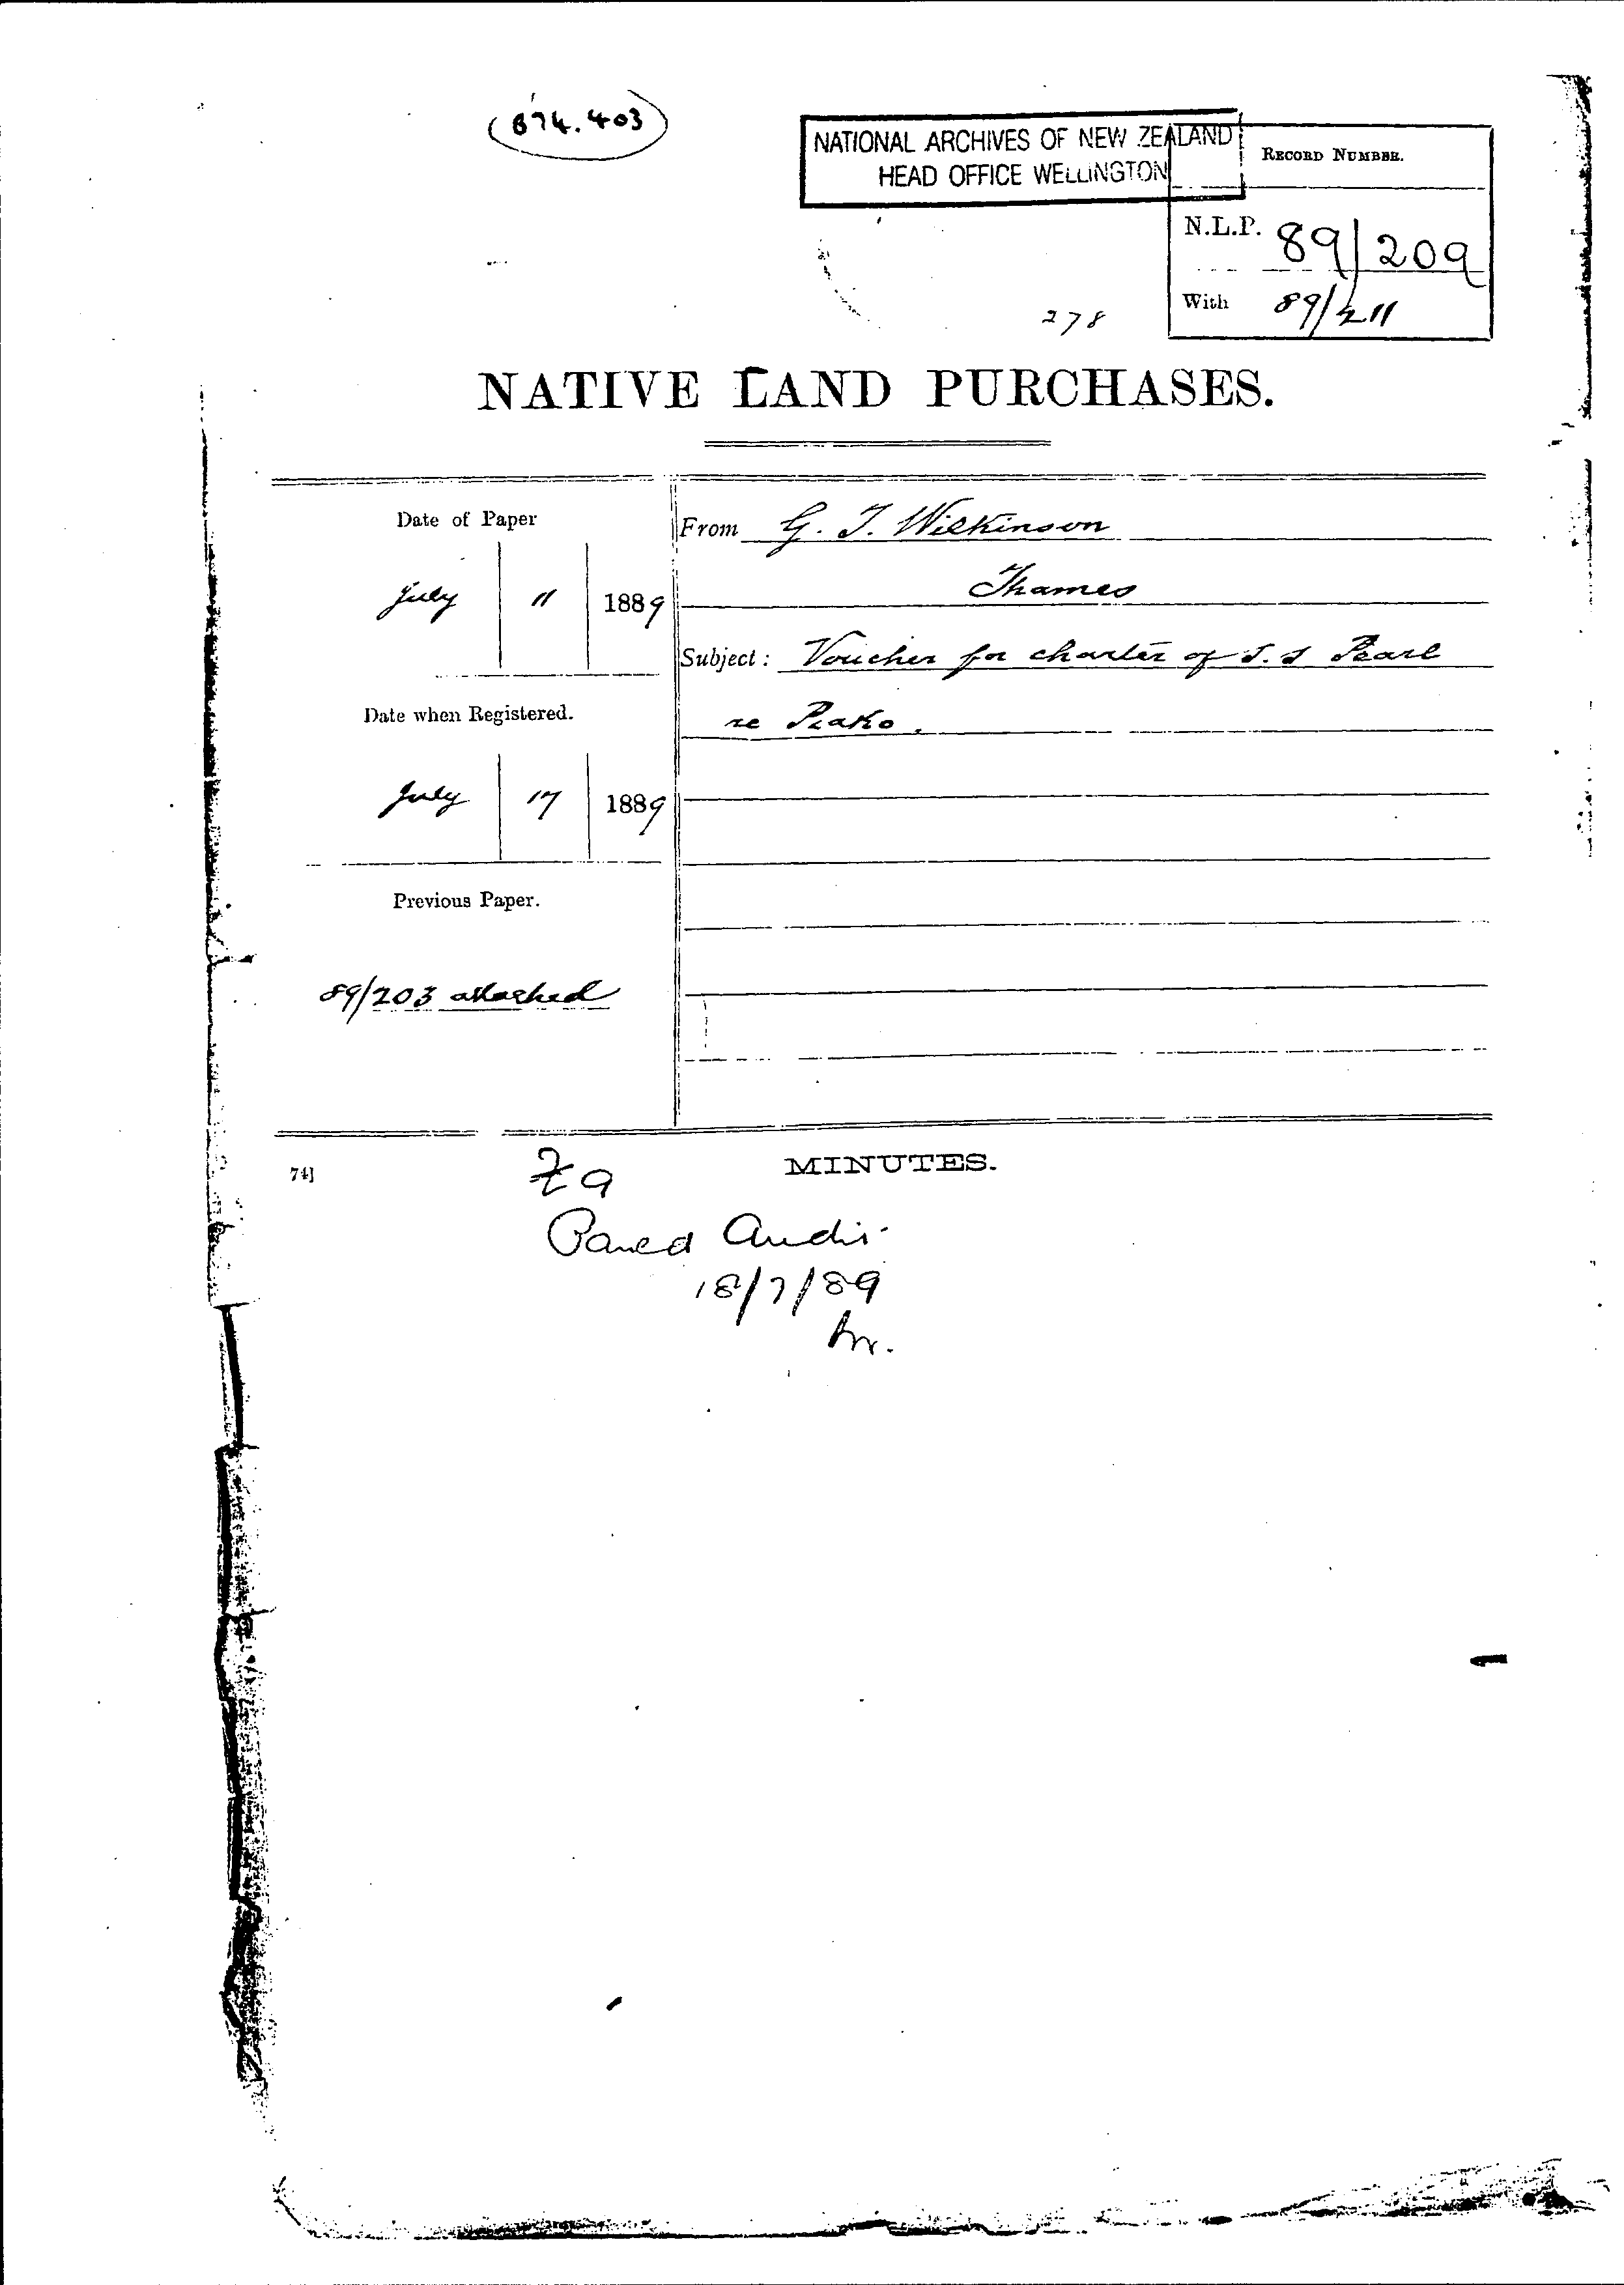 (874.403)
NATIONAL ARCHIVES OF NEW ZEALAND
HEAD OFFICE WELLINGTON
RECORD NUMBER.
N.L.P. 89/209
With 89/211
278
NATIVE LAND PURCHASES.
Date of Paper
July 11 1889
From G. T. Wilkinson
Thames
Subject: Voucher for charter of S.S Pearl
re Piako.
Date when Registered.
July 17 1889
Previous Paper.
89/203 attached
74]
MINUTES.
Passed Audit
18/7/89